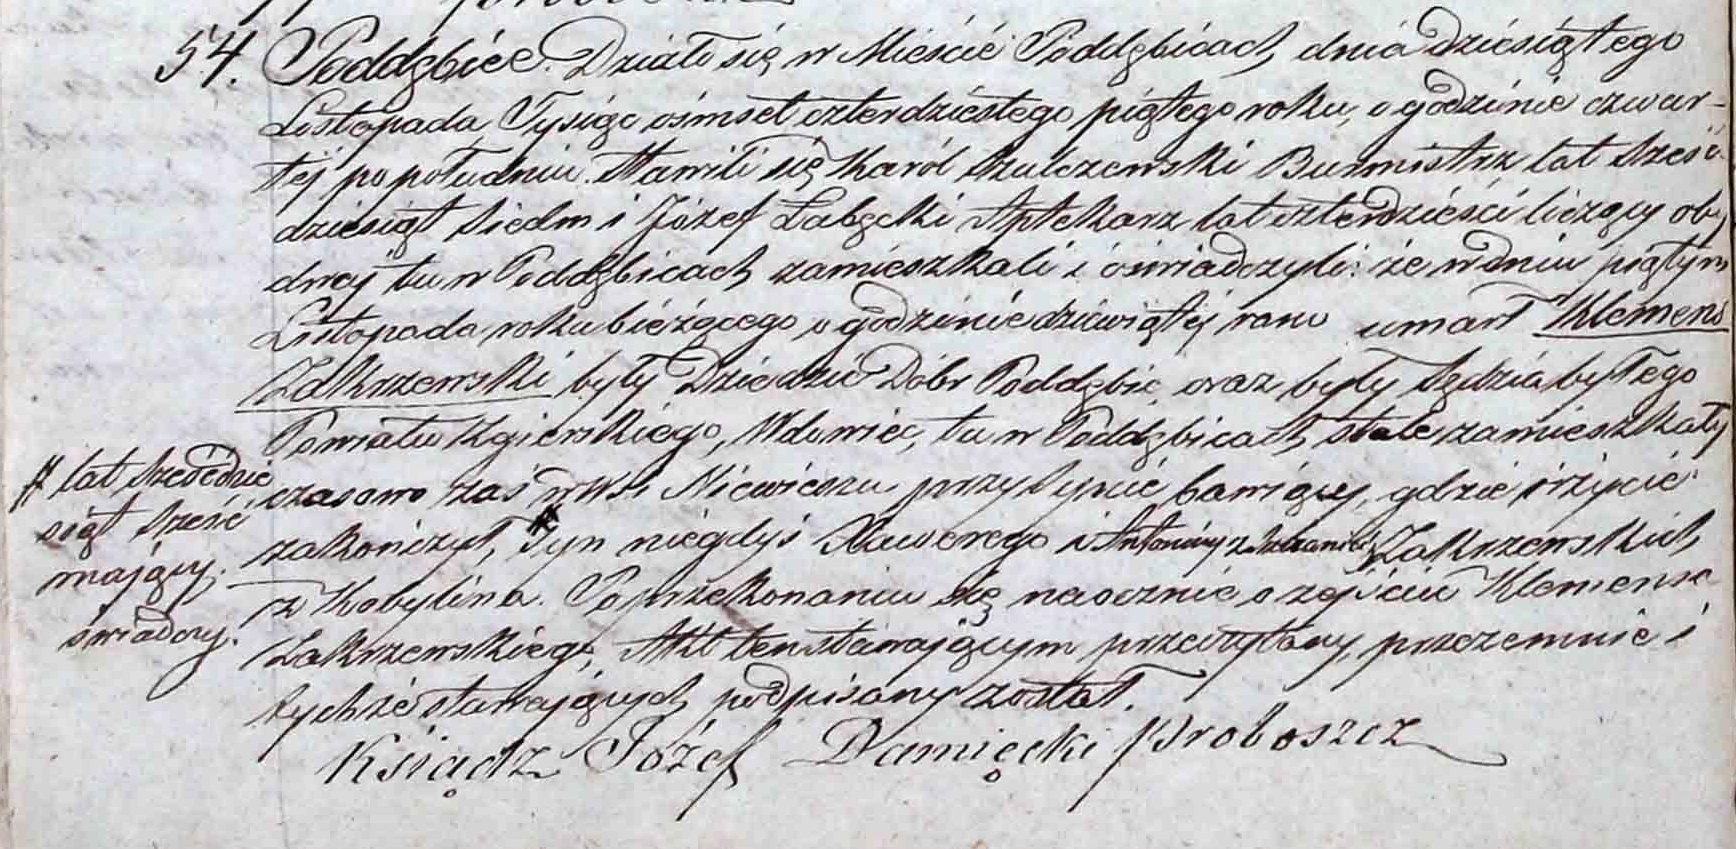 54. Poddębice. Działo się w Mieście Poddębicach dnia dziesiątego
Listopada Tysiąc ośmset czterdziestego piątego roku, o godzinie czwar-
téj po południu. Stawili się Karól Szulczewski Burmistrz lat sześć-
dziesiąt siedm i Józef Łabęcki Aptekarz lat czterdzieści liczący oby-
dwaj tu w Poddębicach zamieszkali i oświadczyli: że w dniu piątym
Listopada roku bieżącego o godzinie dziewiątéj rano umarł Klemens
Zakrzewski były Dziedzic Dóbr Poddębic, oraz były Sędzia byłego
Powiatu Zgierskiego, Wdowiec, tu w Poddębicach stale zamieszkały
czasowo zaś w Wsi Niewieszu przy Synie bawiący, gdzie i życie
zakończył, # Syn niegdyś Xawerego i Antoniny z Zakrzewskich
z Kobylina. Po przekonaniu się naocznie o zejściu Klemensa
Zakrzewskiego, Akt ten stawającym przeczytany, przezemnie i
tychże stawających podpisany został.
Ksiądz Józef Damięcki Proboszcz
# lat sześćdzie
siąt sześć
mający.
świadczy.